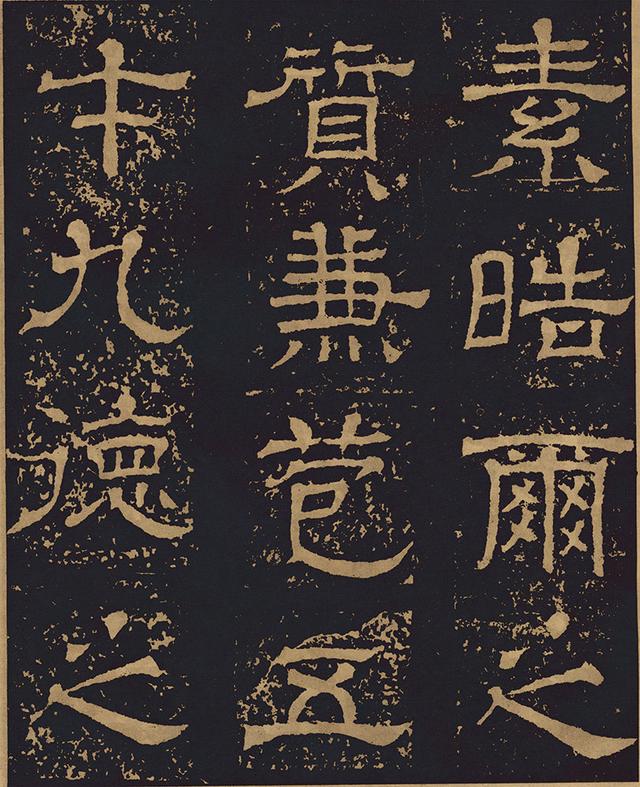 素晧爾之
質兼苞五
才九德之